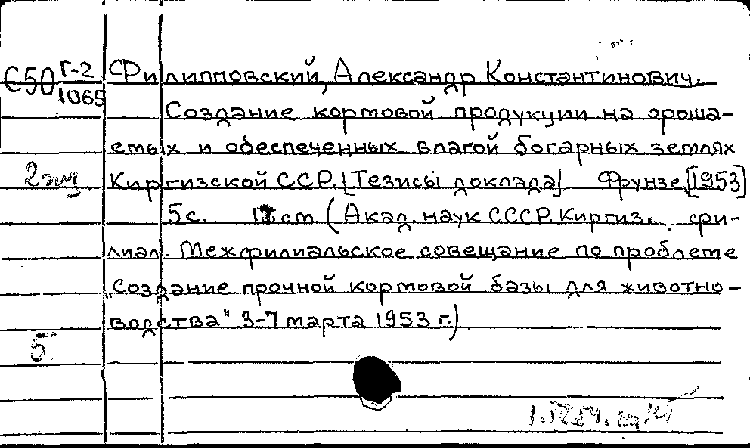 С50 Г-2/1065 Филипповский, Александр Константинович.
Создание кормовой продукции на ороша-
емых и обеспеченных влагой богарных землях
2 экз Киргизской ССР. [Тезисы доклада] Фрунзе, [1953]
5 с. см (Акад. наук СССР. Киргиз. фи-
лиал. Межфилиальское совещание по проблеме
"Создание прочной кормовой базы для животно-
водства" 3-7 марта 1953 г.)
5